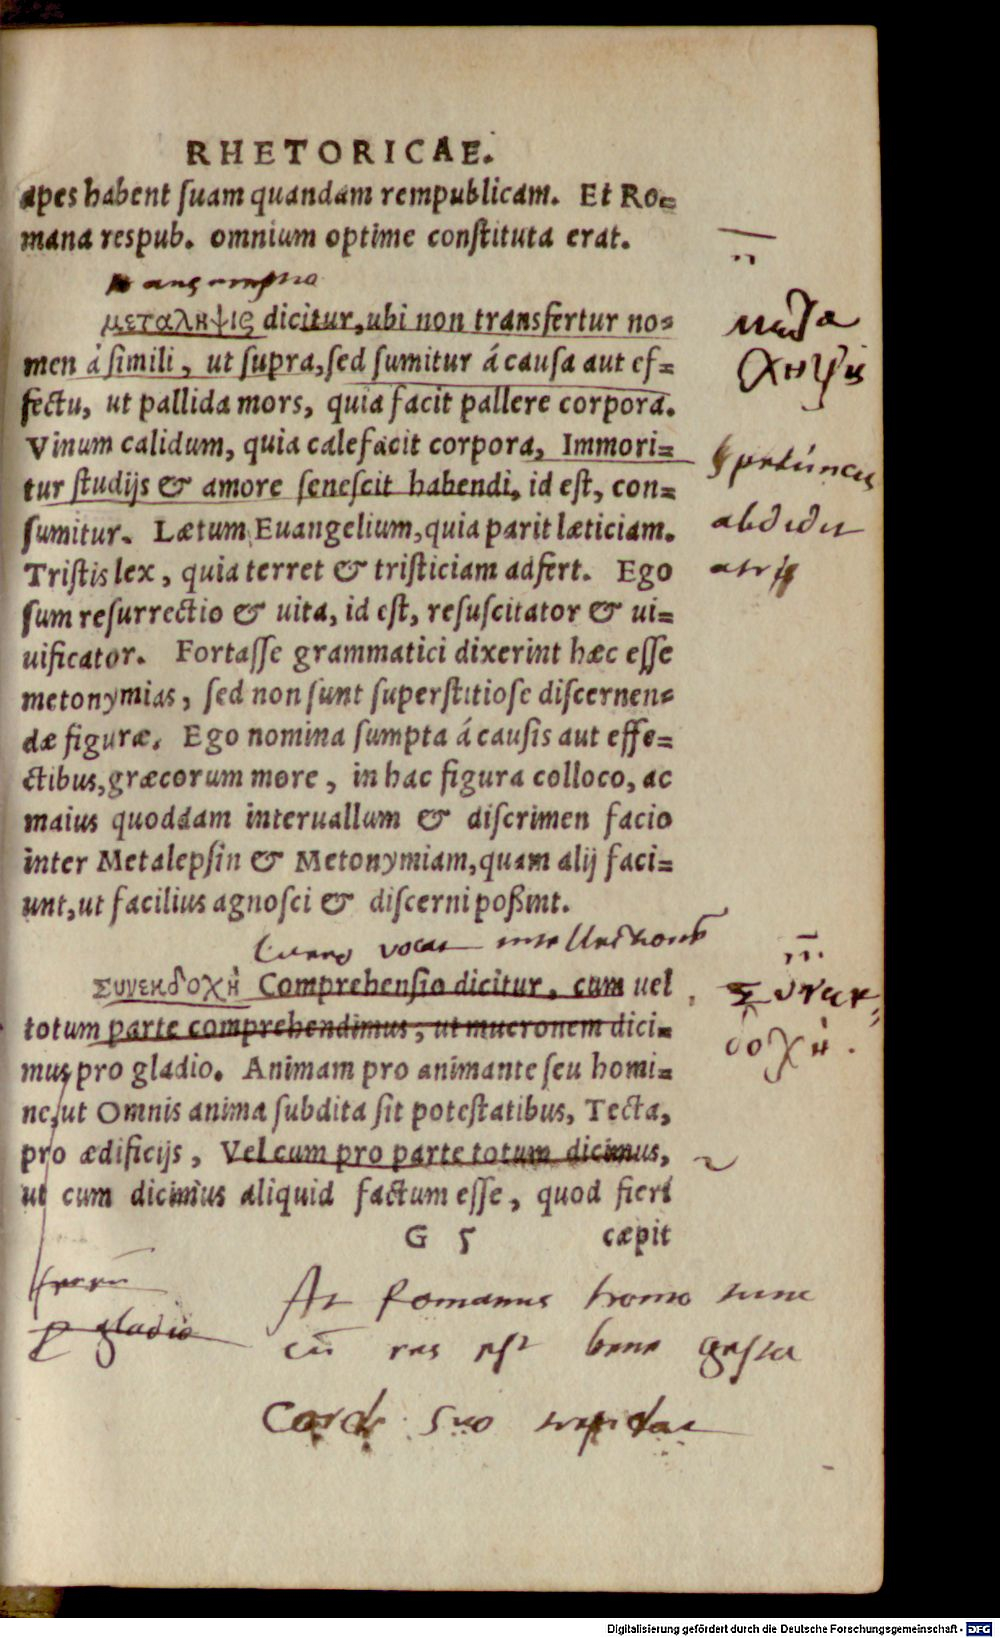 RHETORICAE.
apes habent ſuam quandam rempublicam. Et Ro=
mana respub. omnium optime conſtituta erat.
μεταληψις dicitur, ubi non transfertur no=
men á ſimili, ut ſupra, ſed ſumitur á cauſa aut ef=
fectu, ut pallida mors, quia facit pallere corpora.
Vinum calidum, quia calefacit corpora, Immori=
tur ſtudijs & amore ſeneſcit habendi, id eſt, con=
ſumitur. Lætum Euangelium, quia parit læticiam.
Triſtis lex, quia terret & triſticiam adfert. Ego
ſum reſurrectio & uita, id eſt, reſuſcitator & ui=
uificator. Fortaſſe grammatici dixerint hæc eſſe
metonymias, ſed non ſunt ſuperſtitioſe diſcernen=
dæ figuræ. Ego nomina ſumpta á cauſis aut effe=
ctibus, græcorum more, in hac figura colloco, ac
maius quoddam interuallum & diſcrimen facio
inter Metalepſin & Metonymiam, quam alij faci=
unt, ut facilius agnoſci & diſcerni poßint.
vocat intellectionē
συνεκδοχὴ Comprehenſio dicitur, cum uel
totum parte comprehendimus, ut mucronem dici=
mus pro gladio. Animam pro animante ſeu homi=
ne, ut Omnis anima ſubdita ſit poteſtatibus, Tecta,
pro ædificijs, Vel cum pro parte totum dicimus,
ut cum dicimus aliquid factum eſſe, quod fieri
G 5 cæpit
μετα
ληψις
speluncis
abdidit
atris
Συνεκ=
δοχὴ.
ferrū
p gladio
At Romanus homo tum
cū res est bene gesta
Corde suo trepidat
Digitalisierung gefördert durch die Deutsche Forschungsgemeinschaft - DFG